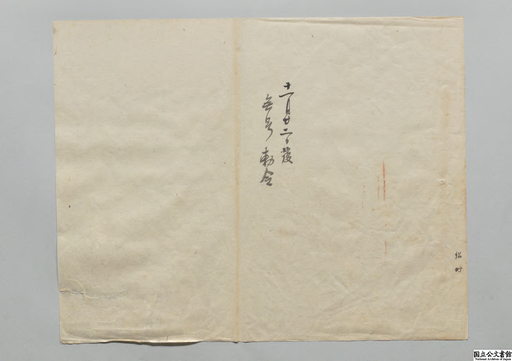 十一月廿二日後
無号勅令
国立公文書館
National Archives of Japan